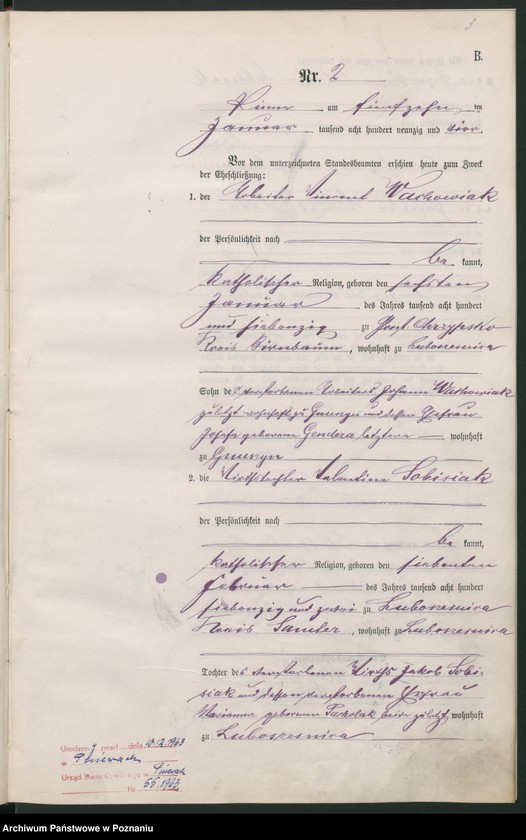 3
B.
Nr. 2
Pinne am fünfzehn ten
Januar tausend acht hundert neunzig und vier.
Vor dem unterzeichneten Standesbeamten erschien heute zum Zweck
der Eheschließung:
1. der Arbeiter Vincent Wachowiak
der Persönlichkeit nach
be kannt,
katholischer Religion, geboren den sechsten
Januar des Jahres tausend acht hundert
und siebenzig zu Groß Chrzypsko
Kreis Birnbaum, wohnhaft zu Lubosesmica
Sohn des verstorbenen Arbeiters Johann Wachowiak
zuletzt wohnhaft zu und dessen Ehefrau
Josefa geborene Gendera letztere wohnhaft
zu
2. die Wirthstochter Valentine Sobisiak
der Persönlichkeit nach
be kannt,
katholischer Religion, geboren den siebenten
Februar des Jahres tausend acht hundert
siebenzig und zwei zu Lubosesmica
Kreis Samter, wohnhaft zu Lubosesmica
Tochter des verstorbenen Wirths Jakob Sobi-
siak und dessen verstorbenen Ehefrau
Marianna geborenen beide zuletzt wohnhaft
zu Lubosesmica
zmarł dnia 10.12.1963
w Pniewach
Urząd Stanu Cywilnego w Pniewach
Nr 55/1963
Archiwum Państwowe w Poznaniu